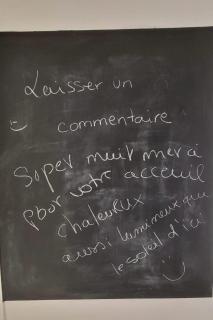 Laisser un
commentaire
Soper nuit merci
pour votre acceuil
chaleureux
aussi lumineux que
le soleil d'ici